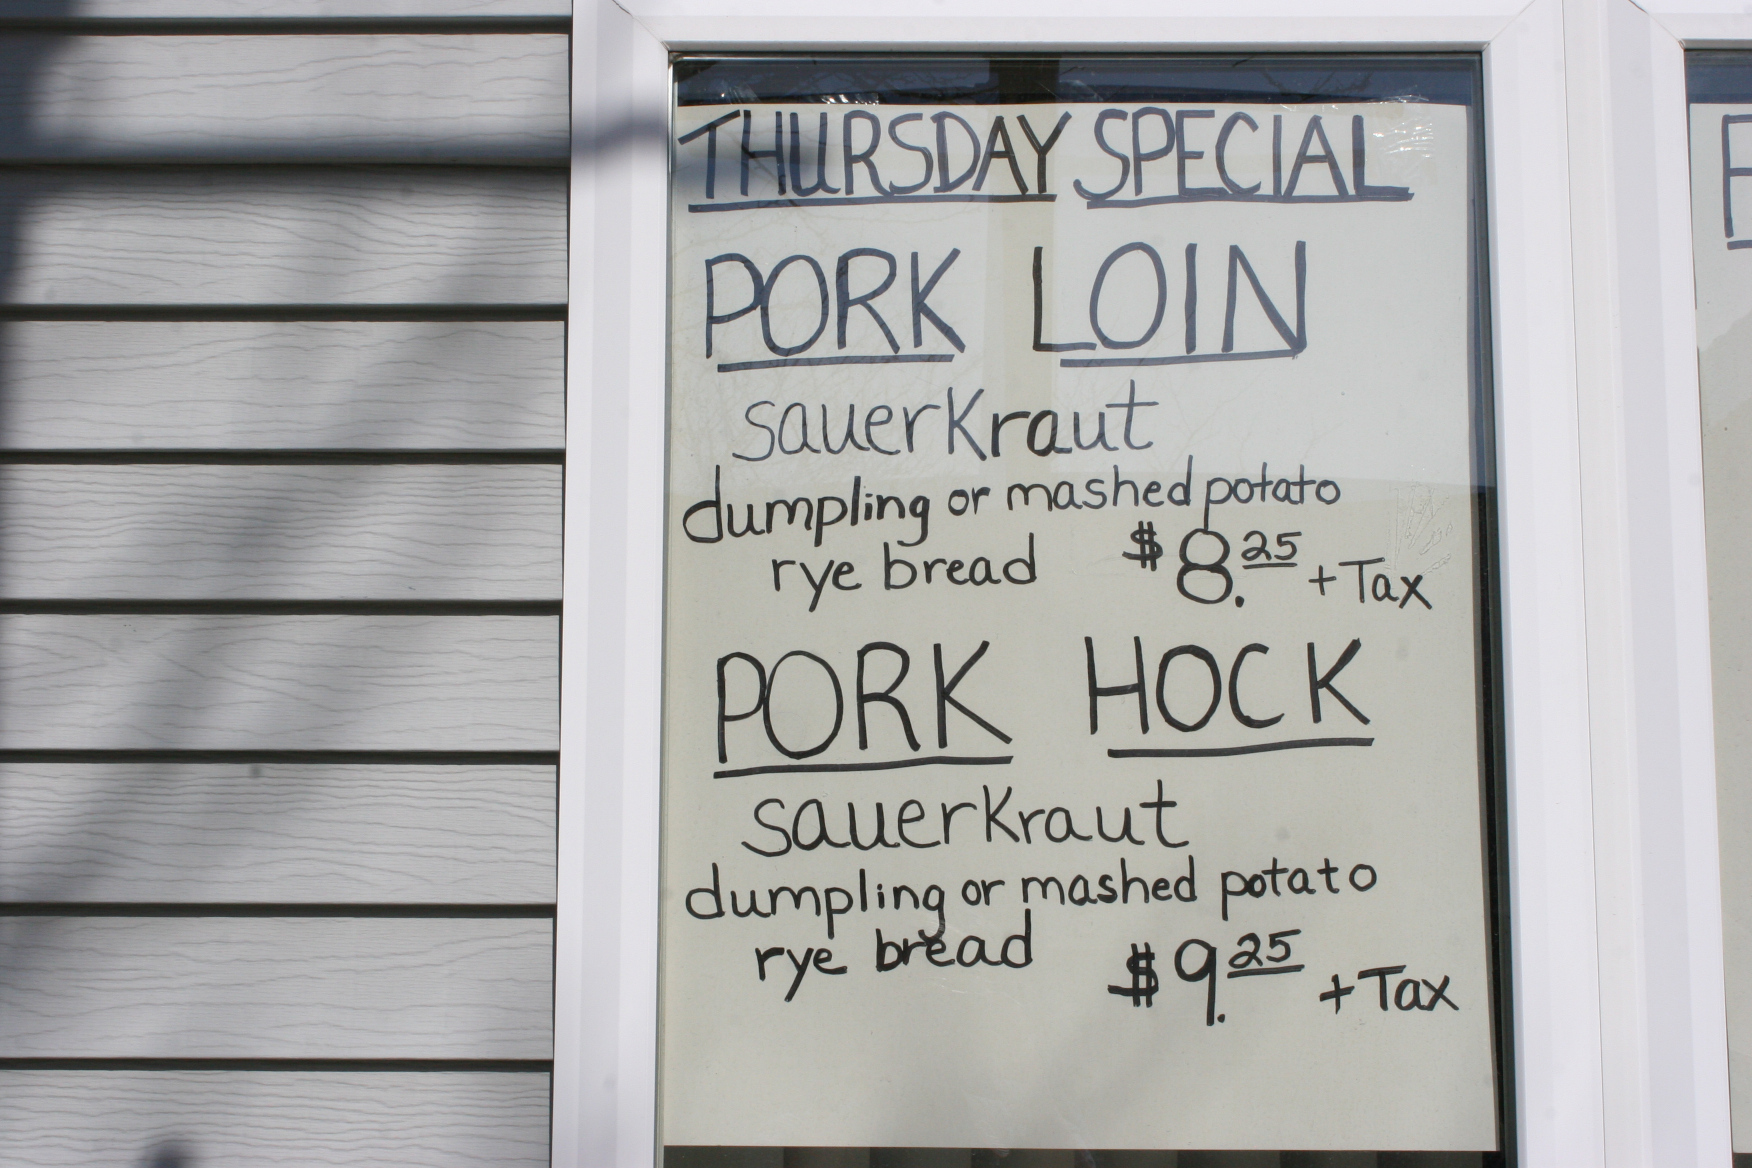 THURSDAY SPECIAL
PORK LOIN
sauerKraut
dumpling or mashed potato
rye bread $8.25 + Tax
PORK HOCK
sauerKraut
dumpling or mashed potato
rye bread $9.25 + Tax